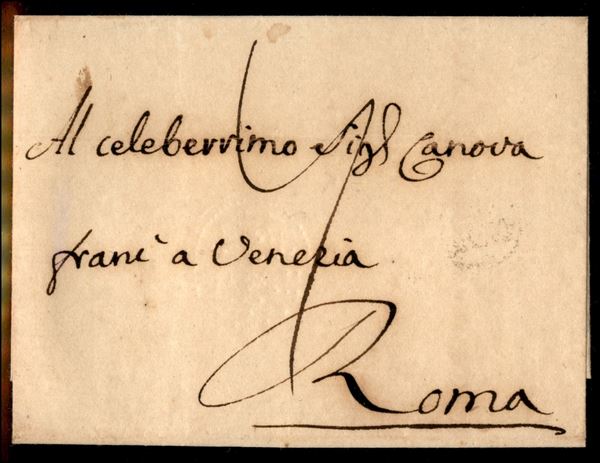 Al celeberrimo Sigr Canova
franc a Venezia
Roma